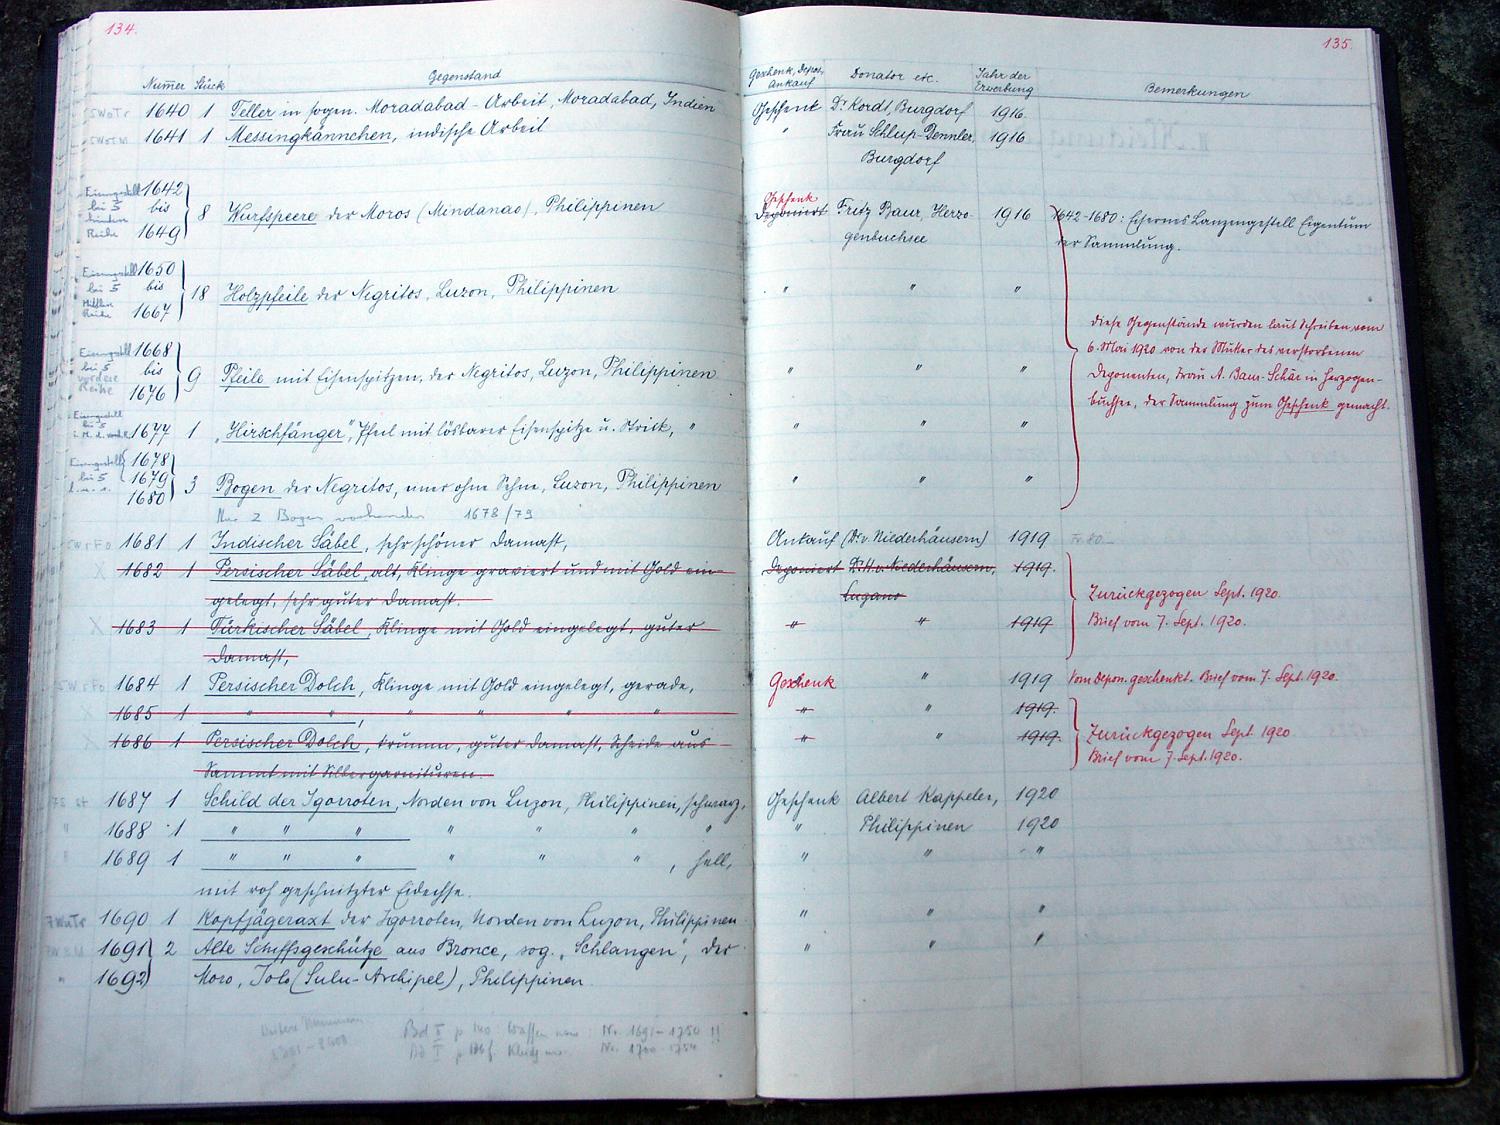 134.
Num̅er Stück Gegenstand
1640 1 Teller in sogen. Moradabad-Arbeit, Moradabad, Indien
1641 1 Messingkännchen, indische Arbeit
Eisengestell 1642
bei 5 bis 8 Wurfspeere der Moros (Mindanao), Philippinen
Reihe 1649
Eisengestell 1650
bei 5 bis 18 Holzpfeile der Negritos, Luzon, Philippinen
Mittlere
Reihe 1667
Eisengestell 1668
bei 5 bis 9 Pfeile mit Eisenspitzen, der Negritos, Luzon, Philippinen
vordere
Reihe 1676
Eisengestell
bei 5
1677 1 „Hirschfänger", Pfeil mit lösbarer Eisenspitze u. Strick, "
Eisengestell 1678
bei 5 1679 3 Bogen der Negritos, einer ohne Sehne, Luzon, Philippinen
1680
Nur 2 Bogen vorhanden 1678/79
1681 1 Indischer Säbel, sehr schöner Damast,
X 1682 1 Persischer Säbel, alt, Klinge graviert und mit Gold ein-
gelegt, sehr guter Damast.
X 1683 1 Türkischer Säbel, Klinge mit Gold eingelegt, guter
Damast,
1684 1 Persischer Dolch, Klinge mit Gold eingelegt, gerade,
X 1685 1 " " , " " " "
X 1686 1 Persischer Dolch, krumm, guter Damast, Scheide aus
Sammt mit Silbergarnituren
1687 1 Schild der Igorroten, Norden von Luzon, Philippinen, schwarz,
" 1688 1 " " " " " " "
" 1689 1 " " " " " " , hell,
mit roh geschnitzter Eidechse.
1690 1 Kopfjägeraxt der Igorroten, Norden von Luzon, Philippinen
1691 2 Alte Schiffsgeschütze aus Bronce, sog. „Schlangen", der
" 1692 Moro, Jolo (Sulu-Archipel), Philippinen.
Weitere Nummern
Bd II p 140 Waffen usw: Nr. 1691-1750 !!
Bd I
135.
Geschenk, Depos, Ankauf Donator etc. Jahr der Erwerbung Bemerkungen
Geschenk Dr. Kordt, Burgdorf 1916
" Frau Schlup-Dennler, 1916
Burgdorf
Geschenk
Deponiert Fritz Baur, Herzo- 1916 1642-1680: Eisernes Lanzengestell Eigentum
genbuchsee der Sammlung.
" " "
Diese Gegenstände wurden laut Schreiben vom
6. Mai 1920 von der Mutter des verstorbenen
" " "
Deponenten, Frau A. Baur-Schär in Herzogen-
buchsee, der Sammlung zum Geschenk gemacht.
" " "
" " "
Ankauf (Dr. v. Niederhäusern) 1919 Fr. 80.-
Deponiert Dr. H. v. Niederhäusern, 1919.
Lugano
Zurückgezogen Sept. 1920.
" " 1919 Brief vom 7. Sept. 1920.
Geschenk " 1919 Vom Depon. geschenkt. Brief vom 7. Sept. 1920.
" " 1919.
" " 1919. Zurückgezogen Sept. 1920
Brief vom 7. Sept. 1920.
Geschenk Albert Kappeler, 1920
" Philippinen 1920
" " "
" " "
" " "